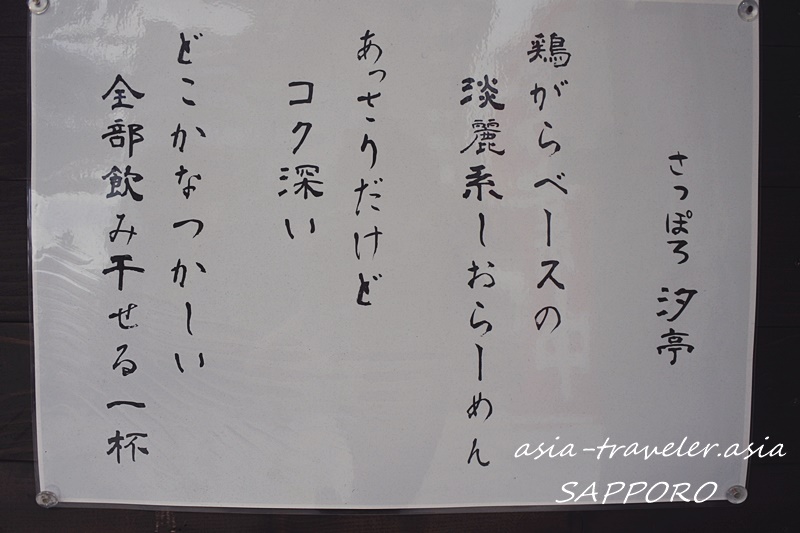 さっぽろ 汐亭
鶏がらベースの
淡麗系しおらーめん
あっさりだけど
コク深い
どこかなつかしい
全部飲み干せる一杯
asia-traveler.asia
SAPPORO